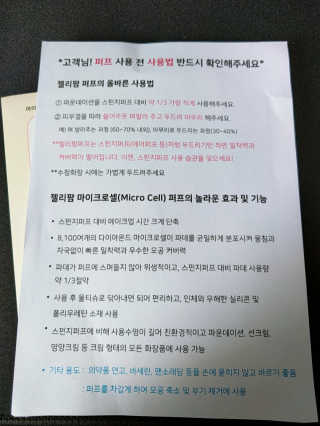 *고객님! 퍼프 사용 전 사용법 반드시 확인해주세요*
젤리팜 퍼프의 올바른 사용법
① 파운데이션을 스펀지퍼프 대비 약 1/3 가량 적게 사용해주세요.
② 피부결을 따라 쓸어주듯 펴발라 주고 두드려 마무리 해주세요
예) 펴 발라주는 과정(60~70% 내외), 마무리로 두드리는 과정(30~40%)
**젤리팜퍼프는 스펀지퍼프(에어퍼프 등)처럼 두드리기만 하면 밀착력과
커버력이 떨어집니다. 이젠, 스펀지퍼프 사용 습관을 잊으세요!
**수정화장 시에는 가볍게 두드려주세요
젤리팜 마이크로셀(Micro Cell) 퍼프의 놀라운 효과 및 기능
• 스펀지퍼프 대비 메이크업 시간 크게 단축
• 8,100여개의 다이아몬드 마이크로셀이 파데를 균일하게 분포시켜 뭉침과
자국없이 빠른 밀착력과 우수한 모공 커버력
• 파데가 퍼프에 스며들지 않아 위생적이고, 스펀지퍼프 대비 파데 사용량
약 1/3절약
• 사용 후 물티슈로 닦아내면 되어 편리하고, 인체와 무해한 실리콘 및
폴리우레탄 소재 사용
• 스펀지퍼프에 비해 사용수명이 길어 친환경적이고 파운데이션, 선크림,
영양크림 등 크림 형태의 모든 화장품에 사용 가능
• 기타 용도 : 의약품 연고, 바세린, 맨소래담 등을 손에 묻히지 않고 바르기 좋음
: 퍼프를 차갑게 하여 모공 축소 및 부기 제거에 사용